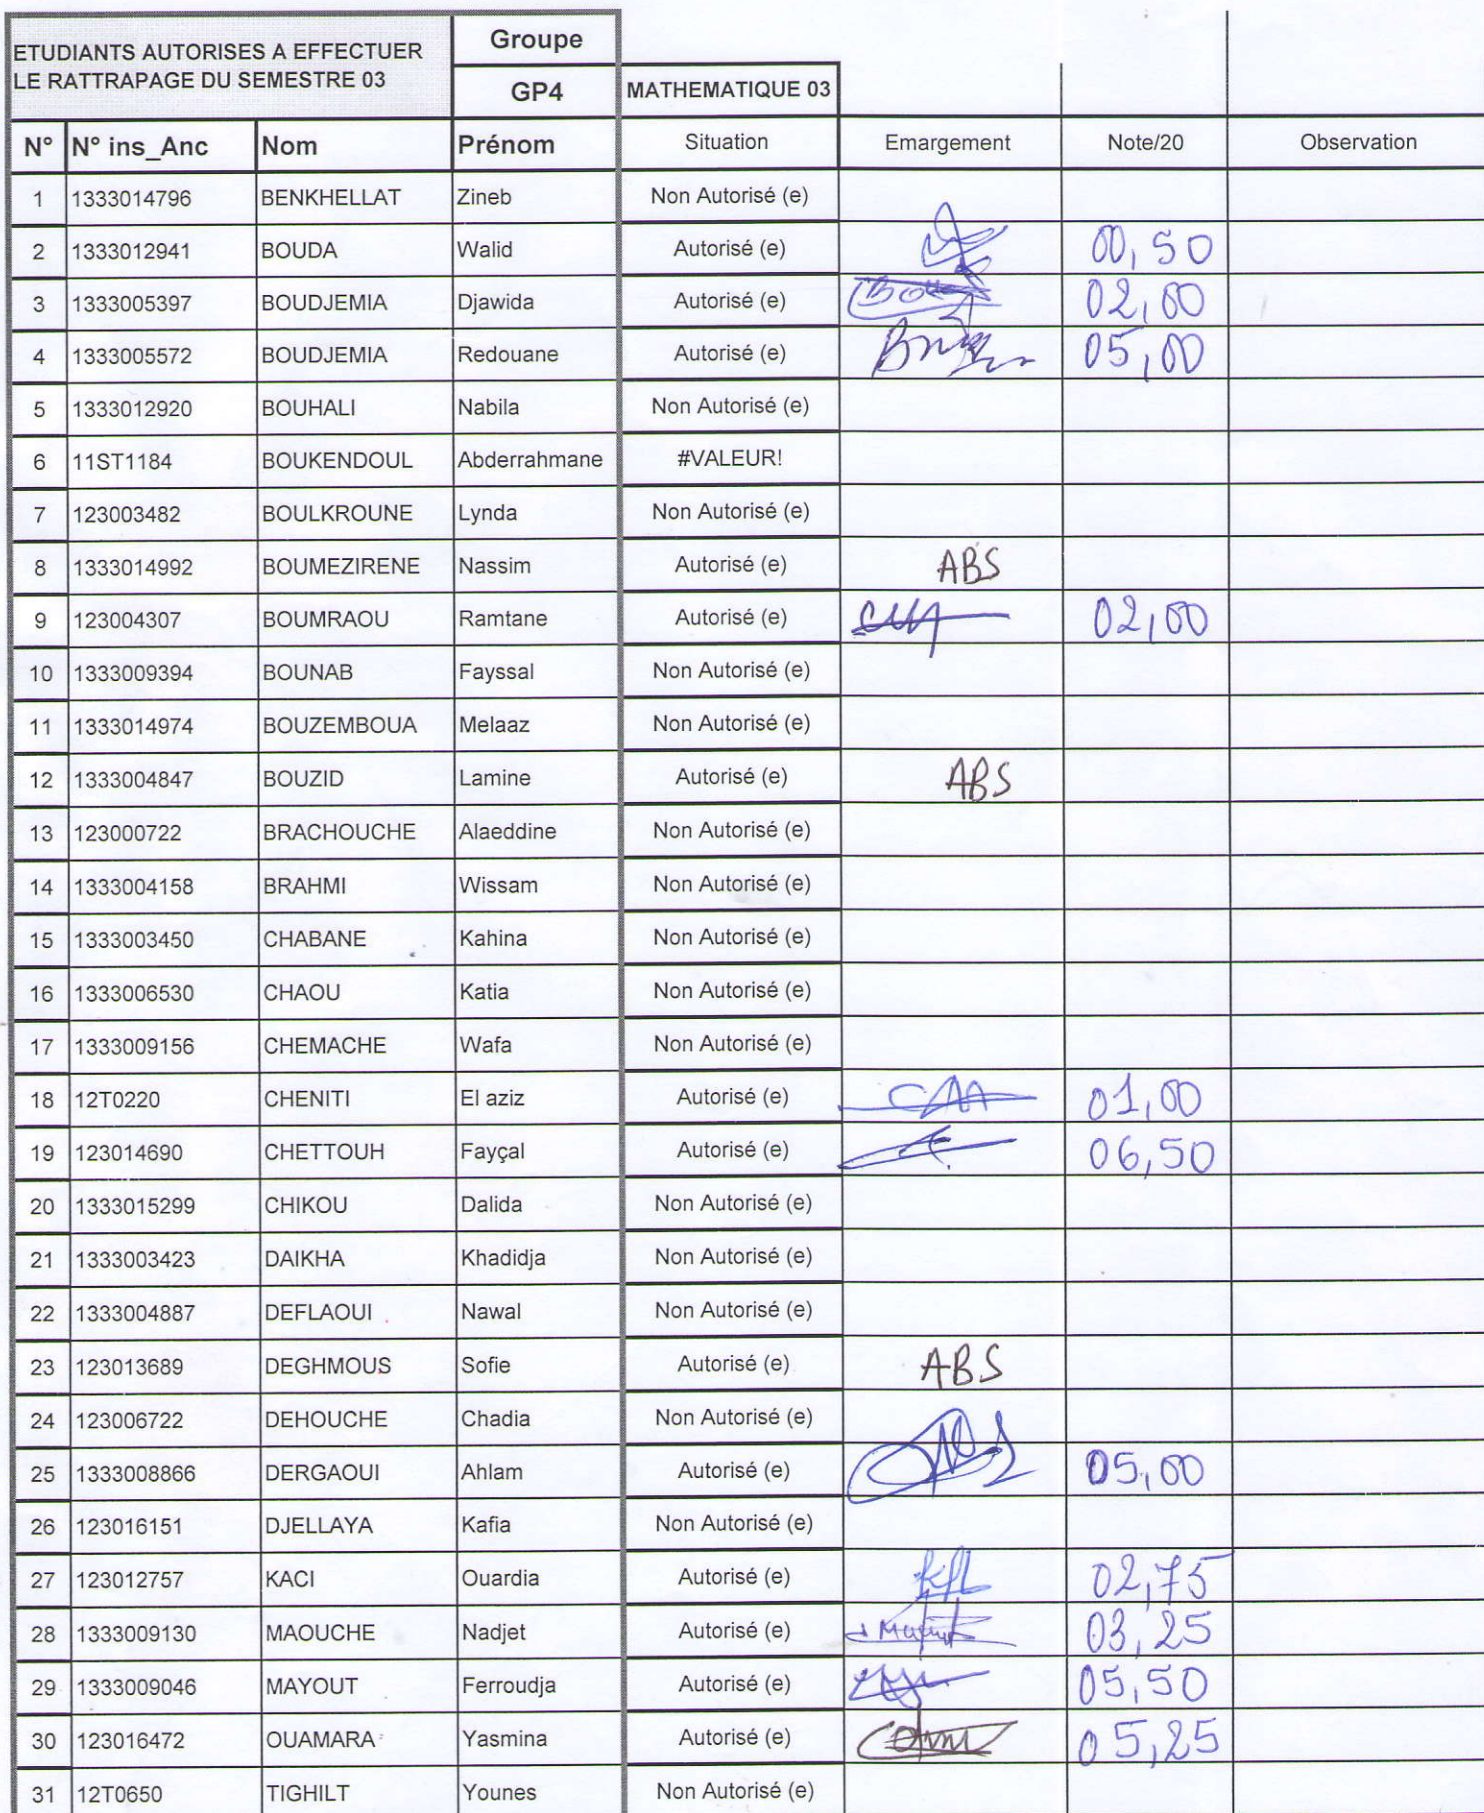 ETUDIANTS AUTORISES A EFFECTUER LE RATTRAPAGE DU SEMESTRE 03
Groupe
GP4 MATHEMATIQUE 03
N° N° ins_Anc Nom Prénom Situation Emargement Note/20 Observation
1 1333014796 BENKHELLAT Zineb Non Autorisé (e)
2 1333012941 BOUDA Walid Autorisé (e) 00,50
3 1333005397 BOUDJEMIA Djawida Autorisé (e) 02,00
4 1333005572 BOUDJEMIA Redouane Autorisé (e) 05,00
5 1333012920 BOUHALI Nabila Non Autorisé (e)
6 11ST1184 BOUKENDOUL Abderrahmane #VALEUR!
7 123003482 BOULKROUNE Lynda Non Autorisé (e)
8 1333014992 BOUMEZIRENE Nassim Autorisé (e) ABS
9 123004307 BOUMRAOU Ramtane Autorisé (e) 02,00
10 1333009394 BOUNAB Fayssal Non Autorisé (e)
11 1333014974 BOUZEMBOUA Melaaz Non Autorisé (e)
12 1333004847 BOUZID Lamine Autorisé (e) ABS
13 123000722 BRACHOUCHE Alaeddine Non Autorisé (e)
14 1333004158 BRAHMI Wissam Non Autorisé (e)
15 1333003450 CHABANE Kahina Non Autorisé (e)
16 1333006530 CHAOU Katia Non Autorisé (e)
17 1333009156 CHEMACHE Wafa Non Autorisé (e)
18 12T0220 CHENITI El aziz Autorisé (e) 01,00
19 123014690 CHETTOUH Fayçal Autorisé (e) 06,50
20 1333015299 CHIKOU Dalida Non Autorisé (e)
21 1333003423 DAIKHA Khadidja Non Autorisé (e)
22 1333004887 DEFLAOUI Nawal Non Autorisé (e)
23 123013689 DEGHMOUS Sofie Autorisé (e) ABS
24 123006722 DEHOUCHE Chadia Non Autorisé (e)
25 1333008866 DERGAOUI Ahlam Autorisé (e) 05,00
26 123016151 DJELLAYA Kafia Non Autorisé (e)
27 123012757 KACI Ouardia Autorisé (e) 02,75
28 1333009130 MAOUCHE Nadjet Autorisé (e) 03,25
29 1333009046 MAYOUT Ferroudja Autorisé (e) 05,50
30 123016472 OUAMARA Yasmina Autorisé (e) 05,25
31 12T0650 TIGHILT Younes Non Autorisé (e)